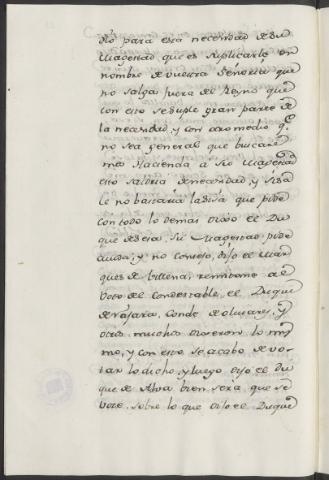 dio para esta necesidad de su
Magestad que es suplicarle en
nombre de vuestra Señoria que
no salga fuera del Reyno que
con esto se suple gran parte de
la necesidad, y con otro medio q.e
no sea general que buscare
mos Hacienda a Su Magestad
esto saldria de necesidad, y si da
le no bastaria la sisa que pide
con todo lo demas dixo el Du
que de Bejar, Su Magestad pide
aiuda, y no consejo, dijo el Mar
ques de Villena, remitome al
Voto del Condestable, el Duque
de Najara, Conde de olivares, y
otros muchos dixeron lo mis
mo, y con esto se acabo de vo
tar lo dicho, y luego dijo el Du
que de Alva bien será que se
Vote, sobre lo que dijo el Duque